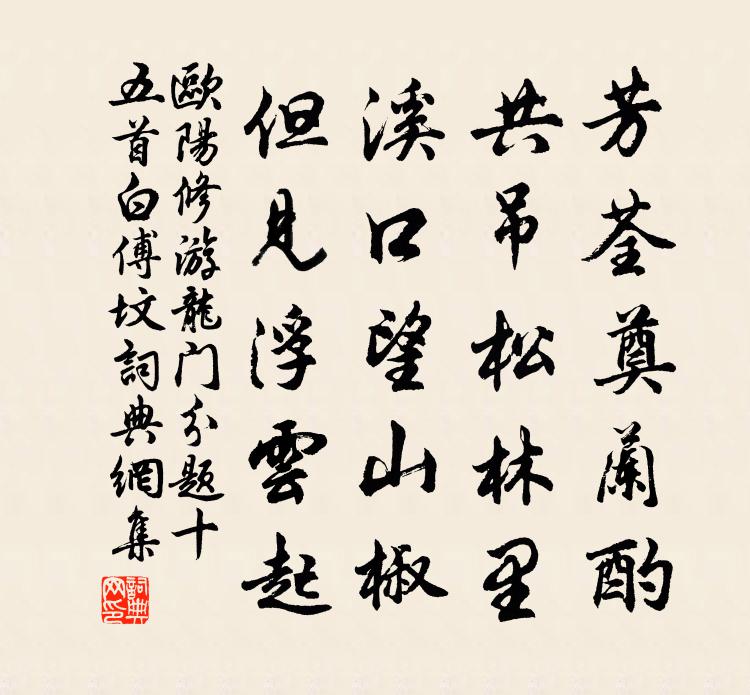 芳荃奠蘭酌
共吊松林里
溪口望山椒
但見浮雲起
歐陽修游龍门分题十
五首白傅坟詞典網集
詞典网印